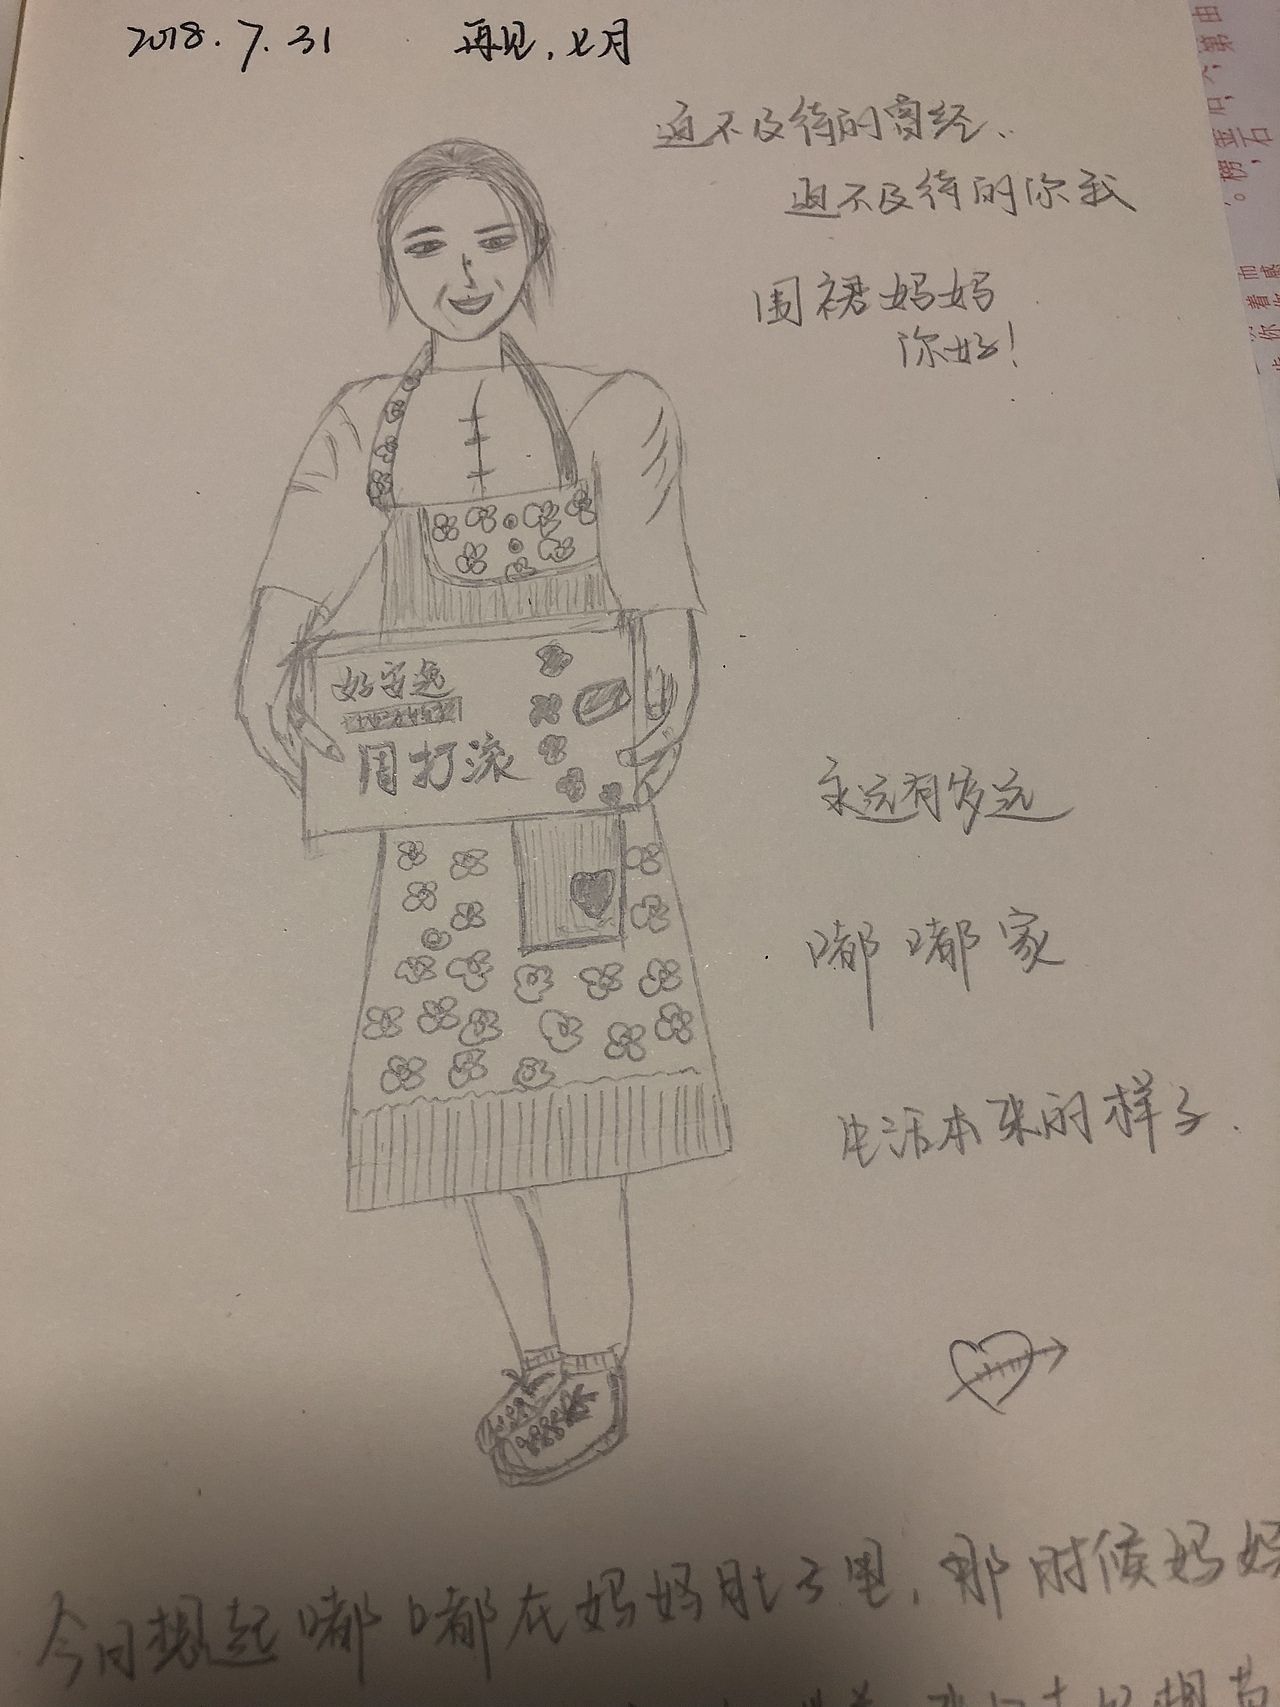 2018.7.31 再见，七月
迫不及待的曾经..
迫不及待的你我
围裙妈妈
你好！
好安逸
用打滚
永远有多远
嘟嘟家
生活本来的样子.
今日想起嘟嘟在妈妈肚子里，那时候妈妈